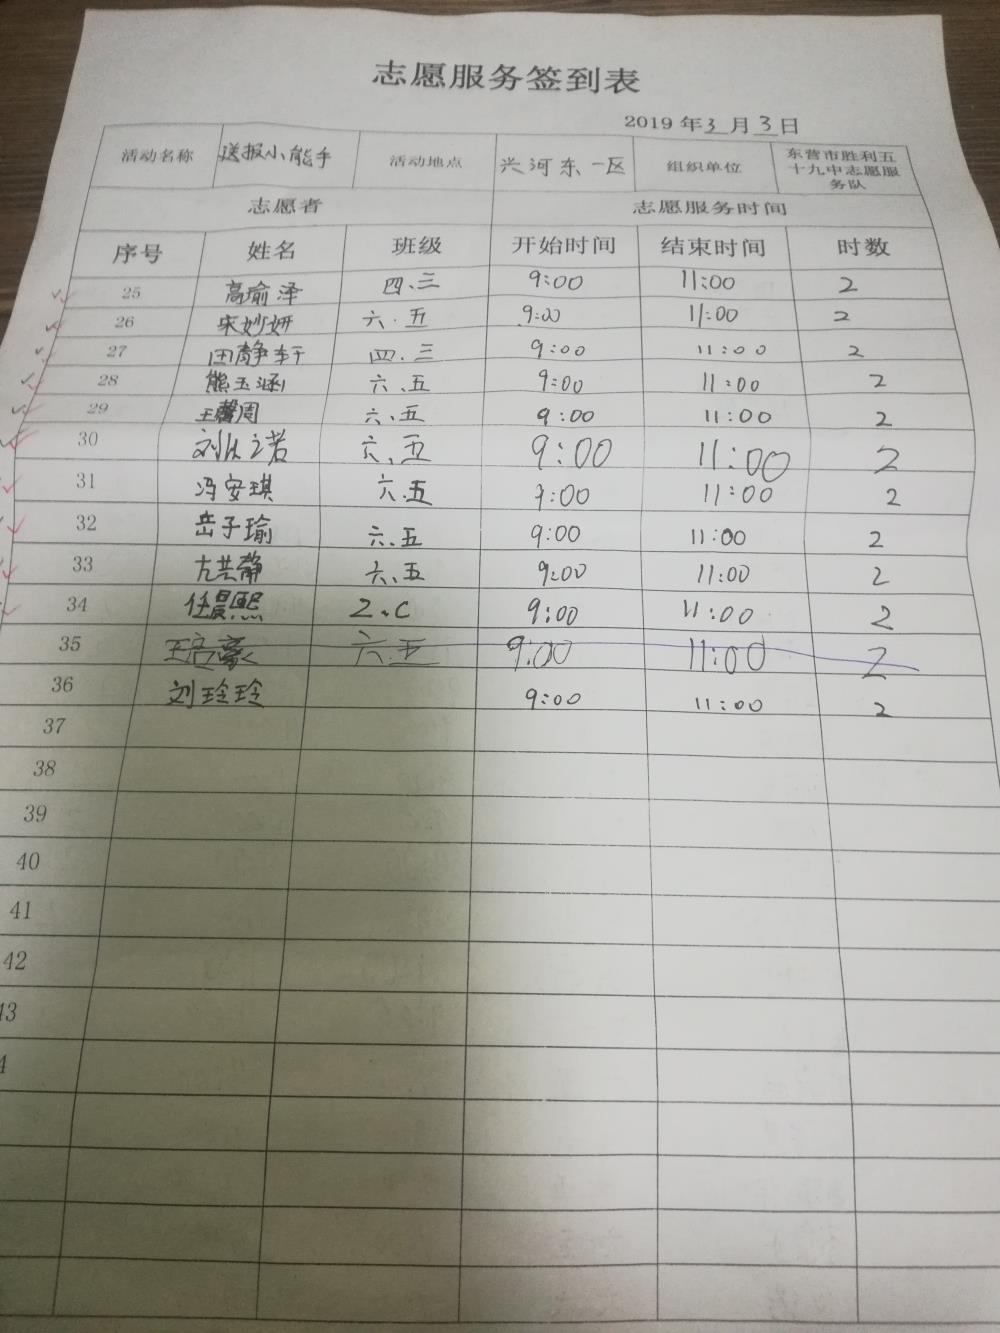 志愿服务签到表
2019 年 3 月 3 日
活动名称 送报小能手 活动地点 兴河东一区 组织单位 东营市胜利五十九中志愿服务队
志愿者 志愿服务时间
序号 姓名 班级 开始时间 结束时间 时数
25 高瑜泽 四.三 9:00 11:00 2
26 宋妙妍 六.五 9:00 11:00 2
27 田静轩 四.三 9:00 11:00 2
28 熊玉涵 六.五 9:00 11:00 2
29 王馨周 六.五 9:00 11:00 2
30 刘从之若 六.五 9:00 11:00 2
31 冯安琪 六.五 9:00 11:00 2
32 岳子瑜 六.五 9:00 11:00 2
33 六.五 9:00 11:00 2
34 任晨熙 2.C 9:00 11:00 2
35 六.五 9:00 11:00 2
36 刘玲玲 9:00 11:00 2
37
38
39
40
41
42
43